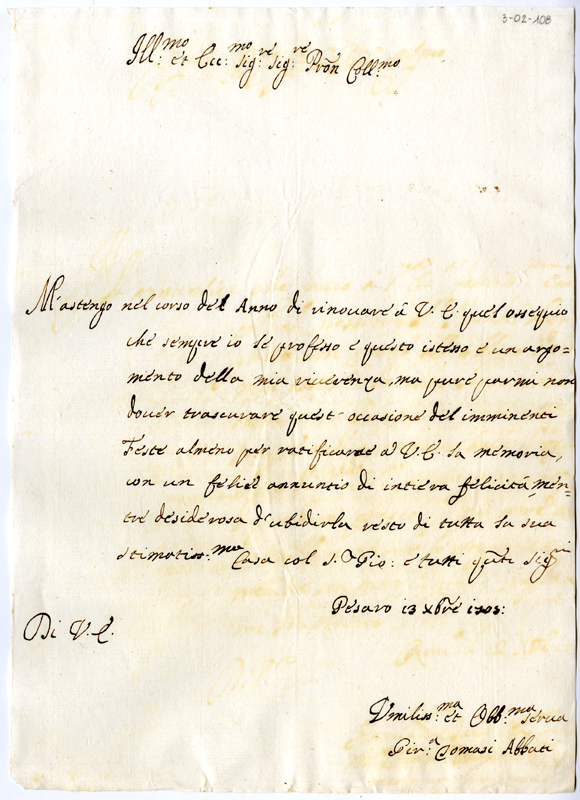 3-02-108
Ill:mo et Ecc:mo Sig:re Sig:re Prōn Coll:mo
M'astengo nel corso del Anno di rinouare á V. E. quel ossequio
che sempre io le professo e questo istesso e un argo=
mento della mia riuerenza, ma pure parmi non
douer trascurare quest occasione del imminenti
Feste almeno per ratificare á V. E. la memoria,
con un felice annuntio di intiera felicitá, men=
tre desiderosa d'ubidirla resto di tutta la sua
stimatiss:ma Casa col S. Gio: e tutti q̃ti Sig:ri
Pesaro 13 Xbre 1703:
Di V. E.
Vmiliss:ma et Obb:ma serua
Tomasi Abbati